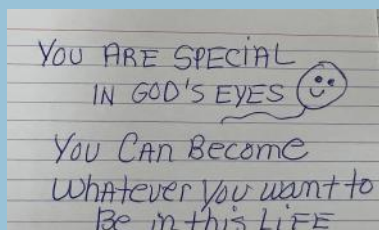 YOU ARE SPECIAL
IN GOD'S EYES
YOU CAN Become
Whatever You want to
Be in this LIFE